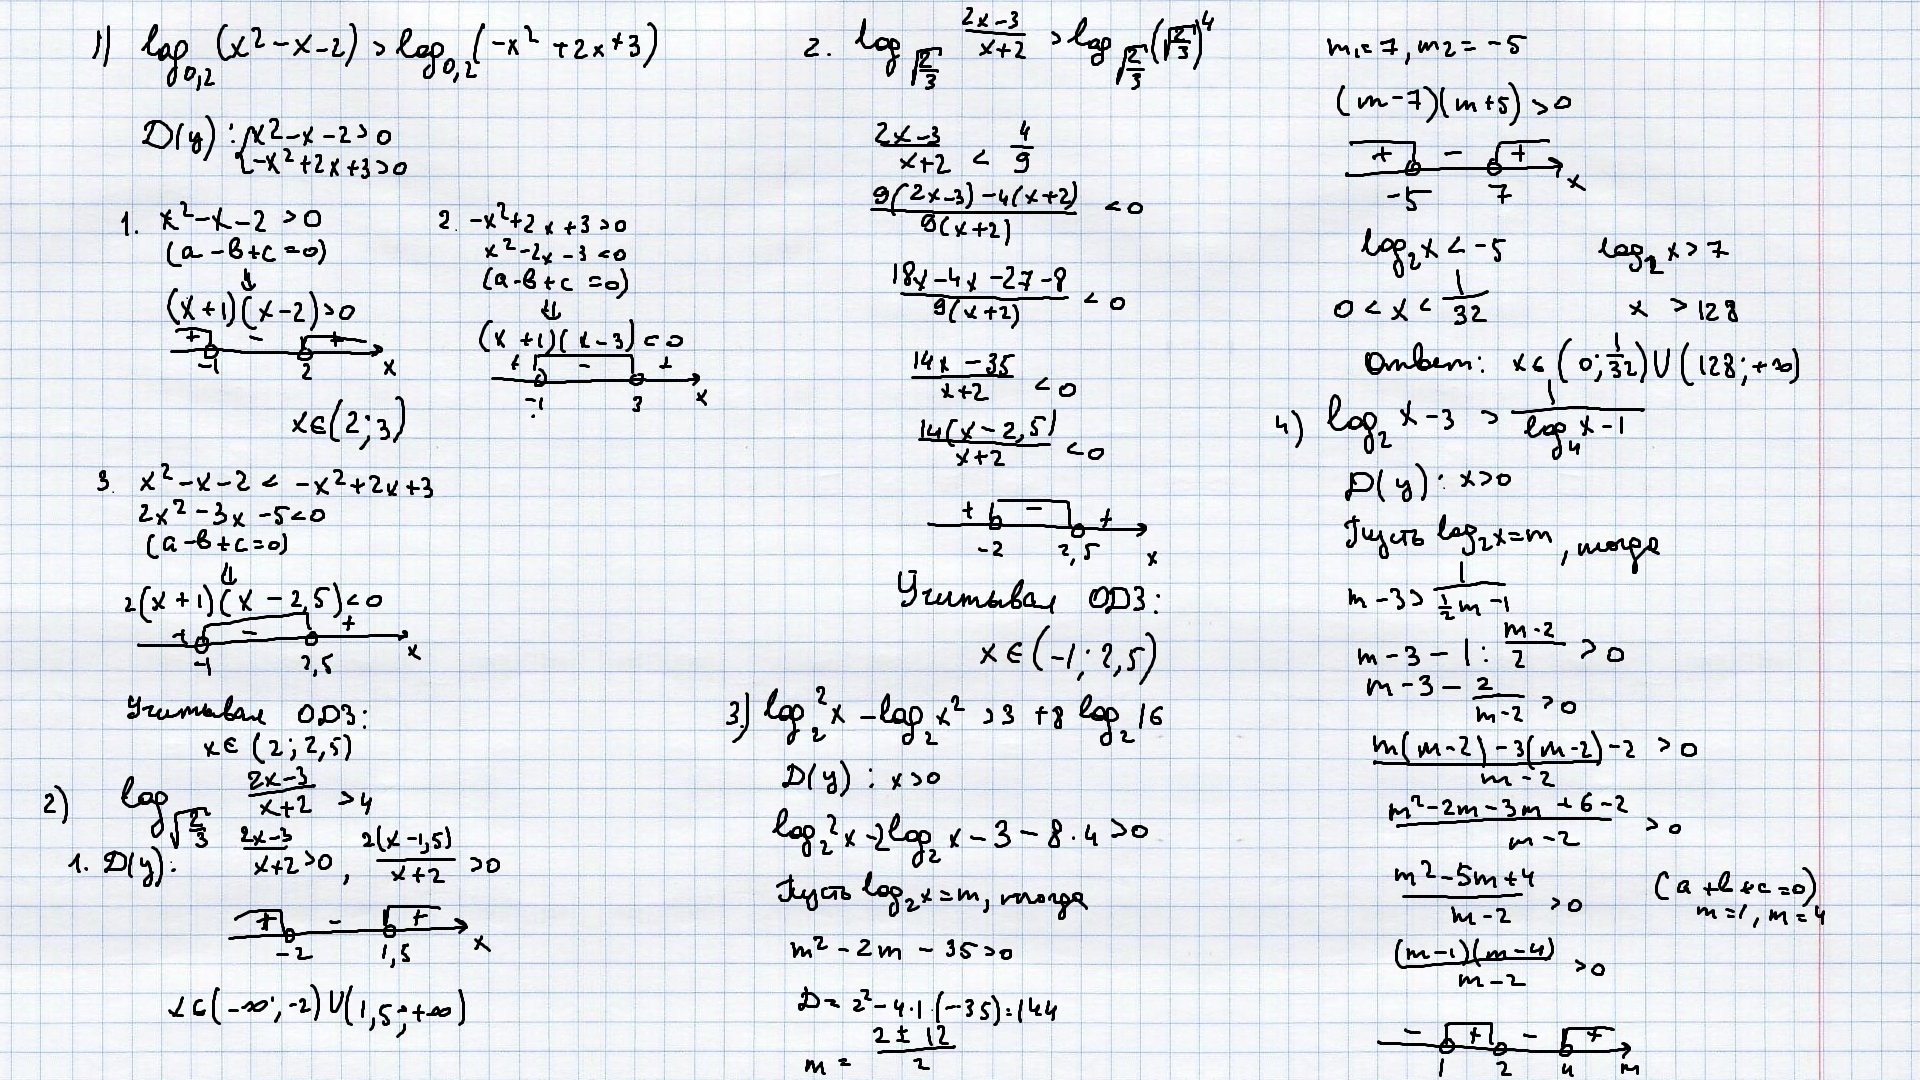 1) log₀,₂(x² – x – 2) > log₀,₂(-x² + 2x + 3)
D(y): { x² – x – 2 > 0
-x² + 2x + 3 > 0
1. x² – x – 2 > 0
(a – b + c = 0)
↓
(x + 1)(x – 2) > 0
+ – +
-1 2 x
2. -x² + 2x + 3 > 0
x² – 2x – 3 < 0
(a – b + c = 0)
⇓
(x + 1)(x – 3) < 0
+ – +
-1 3 x
x ∈ (2; 3)
3. x² – x – 2 < -x² + 2x + 3
2x² – 3x – 5 < 0
(a – b + c = 0)
⇓
2(x + 1)(x – 2,5) < 0
+ – +
-1 2,5 x
Учитывая ОДЗ:
x ∈ (2; 2,5)
2) log_√(2/3) (2x – 3)/(x + 2) > 4
1. D(y): (2x – 3)/(x + 2) > 0, 2(x – 1,5)/(x + 2) > 0
+ – +
-2 1,5 x
x ∈ (-∞; -2) ∪ (1,5; +∞)
2. log_√(2/3) (2x – 3)/(x + 2) > log_√(2/3) (√(2/3))⁴
(2x – 3)/(x + 2) < 4/9
(9(2x – 3) – 4(x + 2))/(9(x + 2)) < 0
(18x – 4x – 27 – 8)/(9(x + 2)) < 0
(14x – 35)/(x + 2) < 0
14(x – 2,5)/(x + 2) < 0
+ – +
-2 2,5 x
Учитывая ОДЗ:
x ∈ (-1; 2,5)
3.) log₂²x – log₂x² > 3 + 8 log₂16
D(y): x > 0
log₂²x – 2log₂x – 3 – 8 · 4 > 0
Пусть log₂x = m, тогда
m² – 2m – 35 > 0
D = 2² – 4·1·(-35) = 144
m = (2 ± 12)/2
m₁ = 7, m₂ = -5
(m – 7)(m + 5) > 0
+ – +
-5 7 x
log₂x < -5 log₂x > 7
0 < x < 1/32 x > 128
Ответ: x ∈ (0; 1/32) ∪ (128; +∞)
4) log₂x – 3 > 1/(log₄x – 1)
D(y): x > 0
Пусть log₂x = m, тогда
m – 3 > 1/(½m – 1)
m – 3 – 1 : (m – 2)/2 > 0
m – 3 – 2/(m – 2) > 0
(m(m – 2) – 3(m – 2) – 2)/(m – 2) > 0
(m² – 2m – 3m + 6 – 2)/(m – 2) > 0
(m² – 5m + 4)/(m – 2) > 0 (a + b + c = 0)
m = 1, m = 4
((m – 1)(m – 4))/(m – 2) > 0
– + – +
1 2 4 m